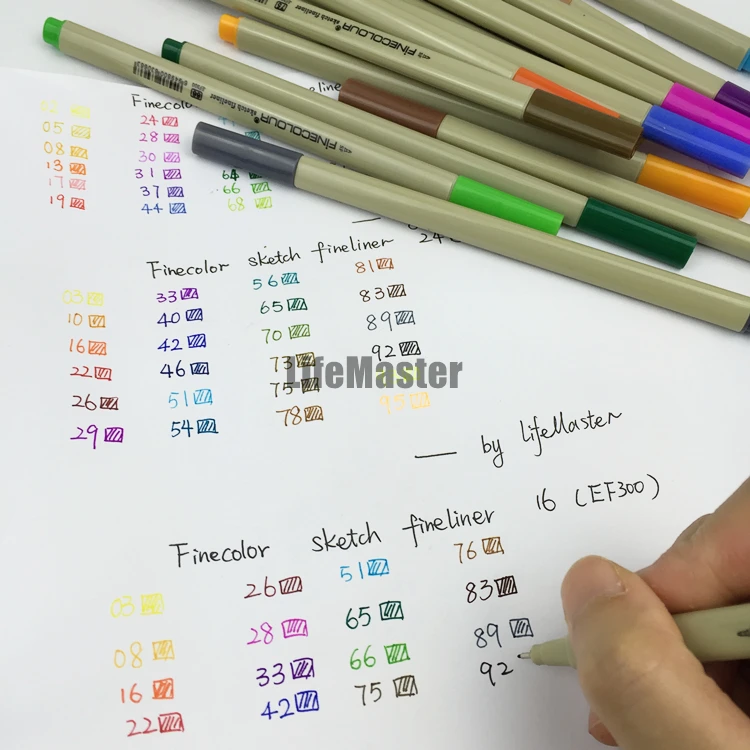 FINECOLOUR® sketch fineliner
FINECOLOUR® sketch fineliner
Finecolo
05 24
08 28
13 30
17 31 64
19 37 66
44 68
Finecolor sketch fineliner 24
03 33 56 81
10 40 65 83
16 42 70 89
22 46 73 92
26 51 75
29 54 78 95
LifeMaster
— by lifeMaster
Finecolor sketch fineliner 16 (EF300)
03 26 51 76
08 28 65 83
16 33 66 89
22 42 75 92